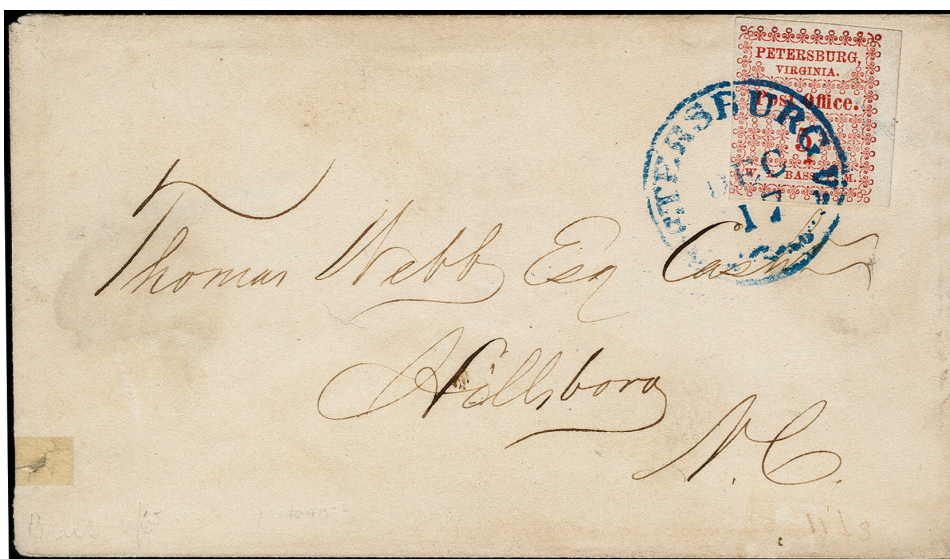 PETERSBURG,
VIRGINIA.
Post Office.
5
W. BASS M.
PETERSBURG VA.
DEC
17
Thomas Webb Esq Cashr
Hillsboro
N.C.